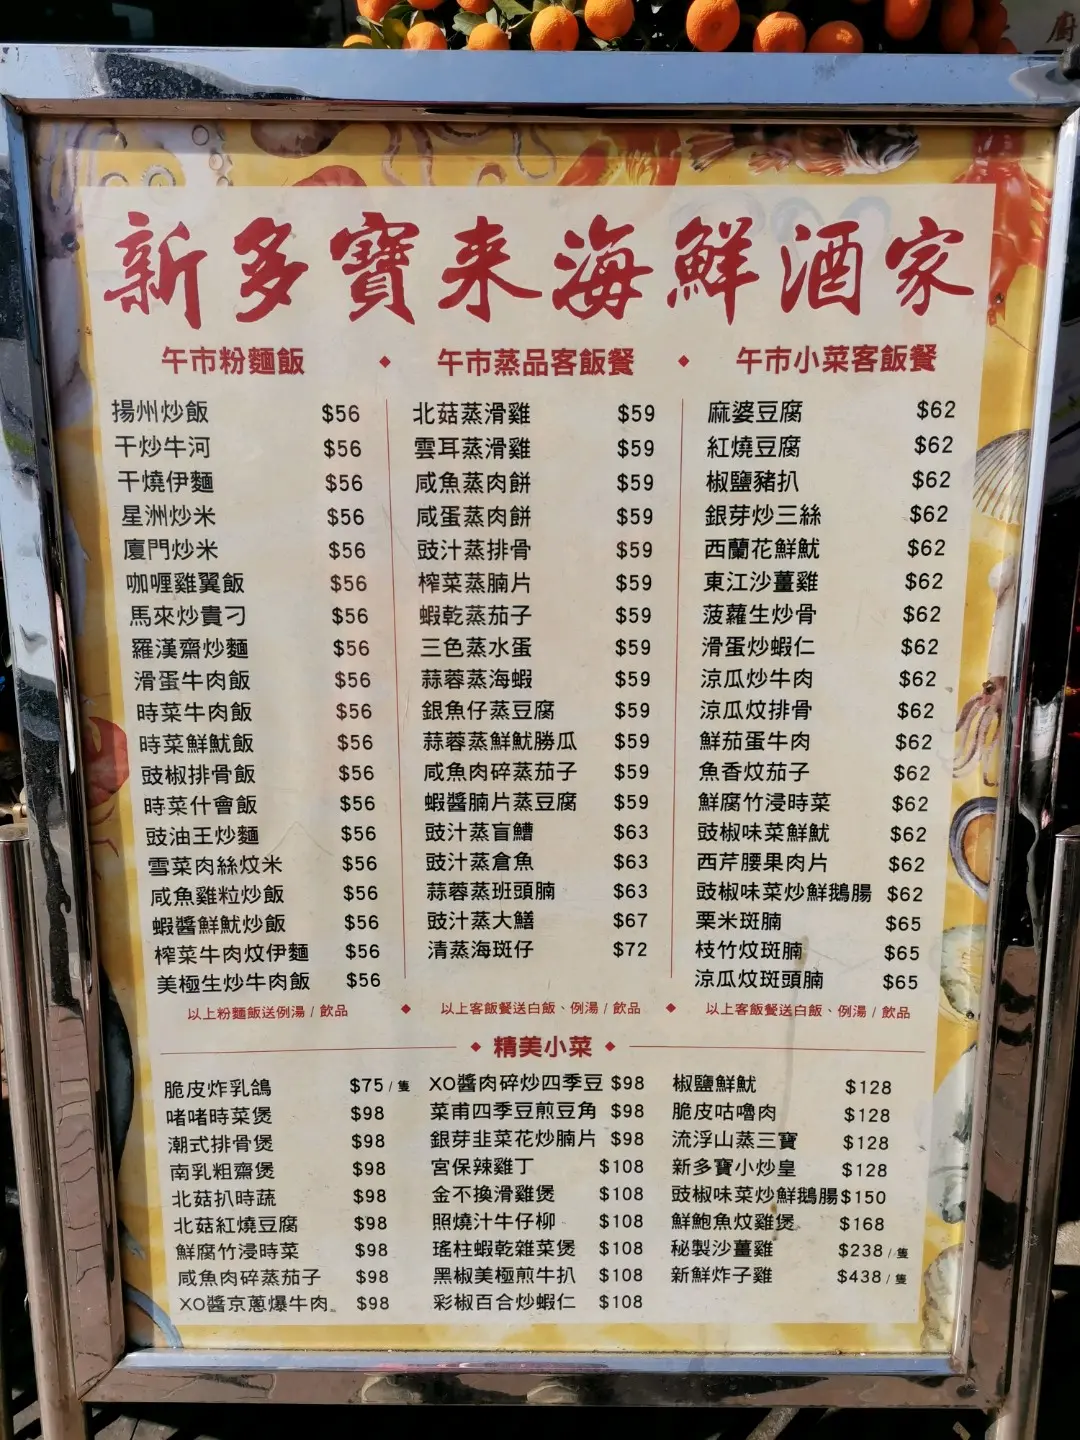 廚
新多寶来海鮮酒家
午市粉麵飯
揚州炒飯 $56
干炒牛河 $56
干燒伊麵 $56
星洲炒米 $56
廈門炒米 $56
咖喱雞翼飯 $56
馬來炒貴刁 $56
羅漢齋炒麵 $56
滑蛋牛肉飯 $56
時菜牛肉飯 $56
時菜鮮魷飯 $56
豉椒排骨飯 $56
時菜什會飯 $56
豉油王炒麵 $56
雪菜肉絲炆米 $56
咸魚雞粒炒飯 $56
蝦醬鮮魷炒飯 $56
榨菜牛肉炆伊麵 $56
美極生炒牛肉飯 $56
以上粉麵飯送例湯 / 飲品
午市蒸品客飯餐
北菇蒸滑雞 $59
雲耳蒸滑雞 $59
咸魚蒸肉餅 $59
咸蛋蒸肉餅 $59
豉汁蒸排骨 $59
榨菜蒸腩片 $59
蝦乾蒸茄子 $59
三色蒸水蛋 $59
蒜蓉蒸海蝦 $59
銀魚仔蒸豆腐 $59
蒜蓉蒸鮮魷勝瓜 $59
咸魚肉碎蒸茄子 $59
蝦醬腩片蒸豆腐 $59
豉汁蒸盲鰽 $63
豉汁蒸倉魚 $63
蒜蓉蒸班頭腩 $63
豉汁蒸大鱔 $67
清蒸海斑仔 $72
以上客飯餐送白飯、例湯 / 飲品
午市小菜客飯餐
麻婆豆腐 $62
紅燒豆腐 $62
椒鹽豬扒 $62
銀芽炒三絲 $62
西蘭花鮮魷 $62
東江沙薑雞 $62
菠蘿生炒骨 $62
滑蛋炒蝦仁 $62
涼瓜炒牛肉 $62
涼瓜炆排骨 $62
鮮茄蛋牛肉 $62
魚香炆茄子 $62
鮮腐竹浸時菜 $62
豉椒味菜鮮魷 $62
西芹腰果肉片 $62
豉椒味菜炒鮮鵝腸 $62
栗米斑腩 $65
枝竹炆斑腩 $65
涼瓜炆斑頭腩 $65
以上客飯餐送白飯、例湯 / 飲品
精美小菜
脆皮炸乳鴿 $75 / 隻
啫啫時菜煲 $98
潮式排骨煲 $98
南乳粗齋煲 $98
北菇扒時蔬 $98
北菇紅燒豆腐 $98
鮮腐竹浸時菜 $98
咸魚肉碎蒸茄子 $98
XO醬京蔥爆牛肉 $98
XO醬肉碎炒四季豆 $98
菜甫四季豆煎豆角 $98
銀芽韭菜花炒腩片 $98
宮保辣雞丁 $108
金不換滑雞煲 $108
照燒汁牛仔柳 $108
瑤柱蝦乾雜菜煲 $108
黑椒美極煎牛扒 $108
彩椒百合炒蝦仁 $108
椒鹽鮮魷 $128
脆皮咕嚕肉 $128
流浮山蒸三寶 $128
新多寶小炒皇 $128
豉椒味菜炒鮮鵝腸 $150
鮮鮑魚炆雞煲 $168
秘製沙薑雞 $238 / 隻
新鮮炸子雞 $438 / 隻